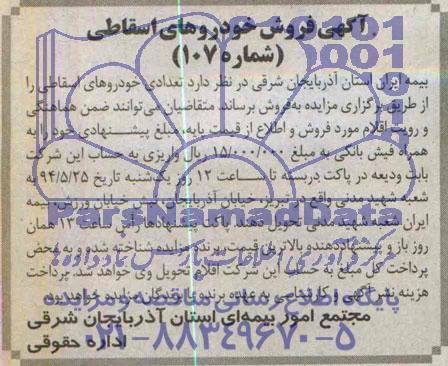 آگهی فروش خودروهای اسقاطی
(شماره ۱۰۷)
بیمه ایران استان آذربایجان شرقی در نظر دارد تعدادی خودروهای اسقاطی را
از طریق برگزاری مزایده به‌فروش برساند. متقاضیان می‌توانند ضمن هماهنگی
و رویت اقلام مورد فروش و اطلاع از قیمت پایه، مبلغ پیشنهادی خود را به
همراه فیش بانکی به مبلغ ۱۵/۰۰۰/۰۰۰ ریال واریزی به حساب این شرکت
بابت ودیعه در پاکت دربسته تا ساعت ۱۲ روز یک‌شنبه تاریخ ۹۴/۵/۲۵ به
شعبه شهید مدنی واقع در تبریز، خیابان آذربایجان، نبش خیابان ورزش، بیمه
ایران شعبه شهید مدنی تحویل دهند. پاکت پیشنهادها رأس ساعت ۱۳ همان
روز باز و پیشنهاددهنده بالاترین قیمت، برنده مزایده شناخته شده و به محض
پرداخت کل مبلغ به حساب این شرکت اقلام تحویل وی خواهد شد. پرداخت
هزینه نشر آگهی و کارشناسی به عهده برنده یا برندگان مزایده خواهد بود.
مجتمع امور بیمه‌ای استان آذربایجان شرقی
اداره حقوقی
ParsNamadData
پایگاه اطلاع رسانی مناقصه و مزایده
۰۲۱-۸۸۳۴۹۶۷۰-۵